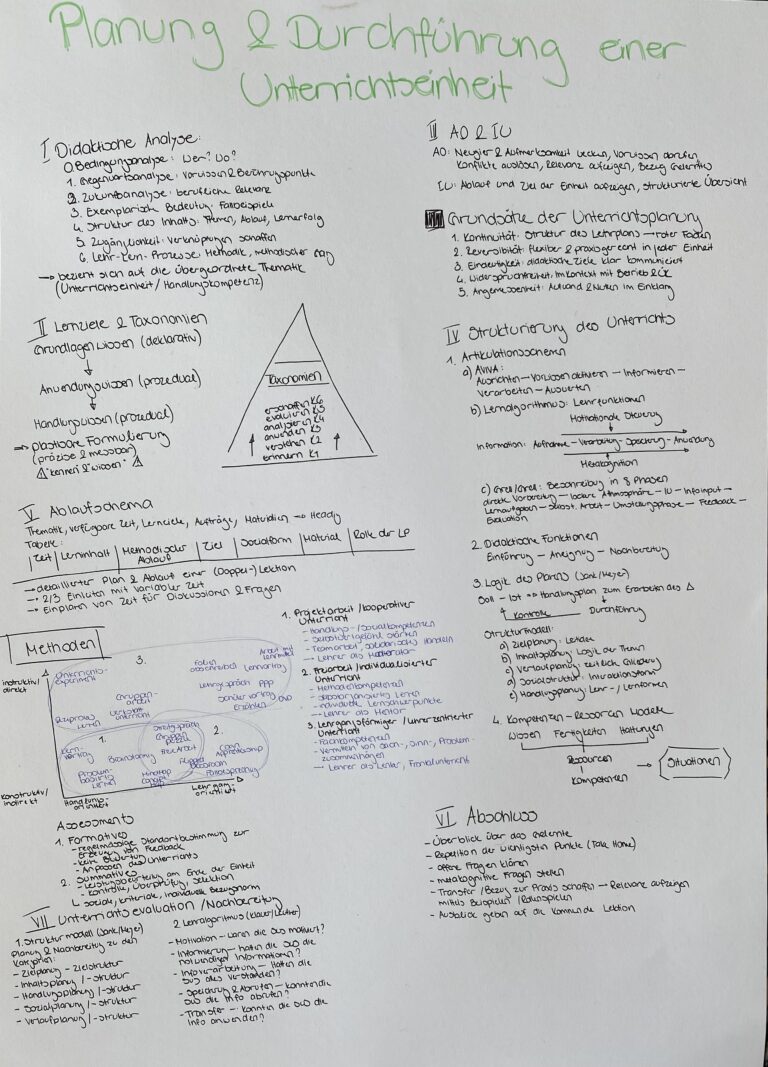 Planung & Durchführung einer
Unterrichtseinheit
I Didaktische Analyse:
0. Bedingungsanalyse: Wer? Wo?
1. Gegenwartsanalyse: Vorwissen & Berührungspunkte
2. Zukunftsanalyse: berufliche Relevanz
3. Exemplarische Bedeutung: Fallbeispiele
4. Struktur des Inhalts: Themen, Ablauf, Lernerfolg
5. Zugänglichkeit: Verknüpfungen schaffen
6. Lehr-Lern-Prozesse: Methodik, methodischer Gang
→ bezieht sich auf die übergeordnete Thematik
(Unterrichtseinheit / Handlungskompetenz)
II Lernziele & Taxonomien
Grundlagenwissen (deklarativ)
Anwendungswissen (prozedual)
Handlungswissen (prozedual)
→ plastbare Formulierung
(präzise & messbar)
"kennen & wissen"
Taxonomien
erschaffen K6
evaluieren K5
analysieren K4
anwenden K3
verstehen K2
erinnern K1
V Ablaufschema
Thematik, verfügbare Zeit, Lernziele, Aufträge, Materialien → Heading
Tabelle:
Zeit | Lerninhalt | Methodischer Ablauf | Ziel | Sozialform | Material | Rolle der LP
→ detaillierter Plan & Ablauf einer (Doppel-)Lektion
→ 2/3 Einheiten mit variabler Zeit
→ Einplanen von Zeit für Diskussionen & Fragen
Methoden
instruktiv/
direkt
konstruktiv/
indirekt
Handlungs-
orientiert
Lehrgang-
orientiert
3.
Unterrichts-
experiment
Folien
Arbeit mit
Lernvortrag
Gruppen-
arbeit
Lehrgespräch PPP
Reziprokes
Lernen
Werkstatt
unterricht
Sondervortrag
DVD
Erzählen
Streitgespräch
Kern-
vortrag
1.
Gruppen
Brainstorming
Freiarbeit
2.
Cogn.
Apprenticeship
Problem-
basiertes
Lernen
Mindmap
Flipped
Classroom
1. Projektarbeit / kooperativer
Unterricht
- Handlungs-/Sozialkompetenzen
- Selbstwertgefühl stärken
- Teamarbeit, solidarisches Handeln
→ Lehrer als Moderator
2. Freiarbeit / individualisierter
Unterricht
- Methodenkompetenzen
- individuelle Lernschwerpunkte
→ Lehrer als Mentor
3. Lehrgangsförmiger / lehrerzentrierter
Unterricht
- Fachkompetenzen
- Vermitteln von Sach-, Sinn-, Problem-
zusammenhängen
→ Lehrer als Leiter, Frontalunterricht
Assessments
1. Formatives
- regelmässige Standortbestimmung zur
Erteilung von Feedback
- keine Bewertung
- Anpassen des Unterrichts
2. Summatives
- Leistungsbeurteilung am Ende der Einheit
- Kontrolle, Überprüfung, Selektion
↳ soziale, kriteriale, individuelle Bezugsnorm
VII Unterrichtsevaluation / Nachbereitung
1. Strukturmodell (Jank/Meyer)
Planung & Nachbereitung zu den
Kategorien:
- Zielplanung - Zielstruktur
- Inhaltsplanung /-struktur
- Handlungsplanung /-struktur
- Sozialplanung /-struktur
- Verlaufplanung /-struktur
2. Lernalgorithmus (Klauer/Leutner)
- Motivation - waren die SuS motiviert?
- Informierung - hatten die SuS die
notwendigen Informationen?
- Infoverarbeitung - Hatten die
SuS alles verstanden?
- Speicherung & Abrufen - Konnten die
SuS die Info abrufen?
- Transfer - Konnten die SuS die
Info anwenden?
III AO & IU
AO: Neugier & Aufmerksamkeit wecken, Vorwissen abrufen
Konflikte auslösen, Relevanz aufzeigen, Bezug Gelerntes
IU: Ablauf und Ziel der Einheit aufzeigen, strukturierte Übersicht
Grundsätze der Unterrichtsplanung
1. Kontinuität: Struktur des Lehrplans → roter Faden
2. Reversibilität: flexibel & praxisgerecht in jeder Einheit
3. Eindeutigkeit: didaktische Ziele klar kommuniziert
4. Widerspruchsfreiheit: Im Kontext mit Betrieb & ÜK
5. Angemessenheit: Aufwand & Nutzen im Einklang
IV Strukturierung des Unterrichts
1. Artikulationsschemen
a) AVIVA:
Ausrichten - Vorwissen aktivieren - Informieren -
Verarbeiten - Auswerten
b) Lernalgorithmus: Lehrfunktionen
Motivationale Steuerung
Information: Aufnahme - Verarbeitung - Speicherung - Anwendung
Metakognition
c) Grell/Grell: Beschreibung in 8 Phasen
direkte Vorbereitung - lockere Athmosphäre - IU - Infoinput -
Lernaufgaben - selbst. Arbeit - Umstellungsphase - Feedback -
Evaluation
2. Didaktische Funktionen
Einführung - Aneignung - Nachbereitung
3. Logik des Planens (Jank/Meyer)
Soll - Ist → Handlungsplan zum Erarbeiten des Δ
Kontrolle
Durchführung
Strukturmodell:
a) Zielplanung: Leitidee
b) Inhaltsplanung: Logik der Themen
c) Verlaufsplanung: zeitliche Gliederung
d) Sozialstruktur: Interaktionsform
e) Handlungsplanung: Lehr-/Lernformen
4. Kompetenzen-Ressourcen Modell
Wissen Fertigkeiten Haltungen
Ressourcen
Kompetenzen
Situationen
VI Abschluss
- Überblick über das Gelernte
- Repetition der wichtigsten Punkte (Take Home)
- offene Fragen klären
- metakognitive Fragen stellen
- Transfer / Bezug zur Praxis schaffen → Relevanz aufzeigen
mittels Beispielen / Rollenspielen
- Ausblick geben auf die kommende Lektion